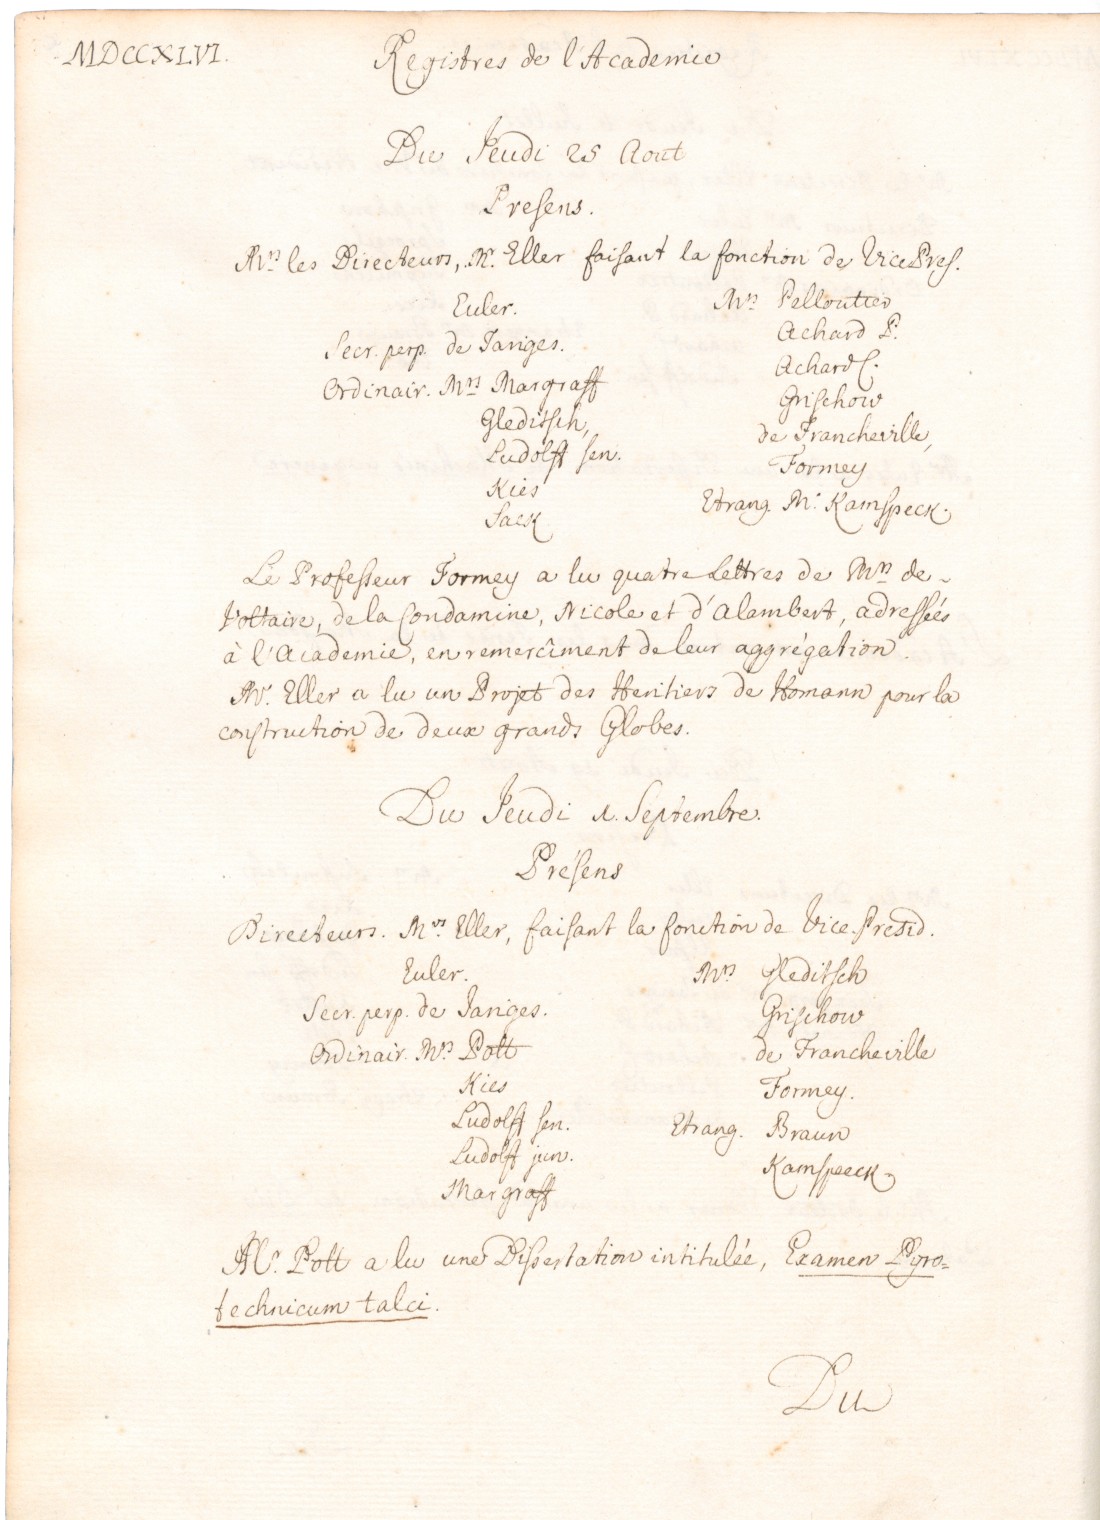 MDCCXLVI.
Registres de l'Academie
Du Jeudi 25 Aout
Presens.
Mrs les Directeurs, Mr. Eller faisant la fonction de Vice Pres.
Euler.
Secr. perp. de Jariges.
Ordinair. Mrs Margraff
Gleditsch,
Ludolff sen.
Kies
Sack
Mrs Pelloutier
Achard P.
Achard C.
Grischow
de Francheville,
Formey
Etrang. Mr. Kamspeck.
Le Professeur Formey a lu quatre Lettres de Mrs de
Voltaire, de la Condamine, Nicole et d'Alembert, adressées
à l'Academie, en remercîment de leur aggrégation.
Mr. Eller a lu un Projet des Heritiers de Homann pour la
construction de deux grands Globes.
Du Jeudi 1. Septembre.
Présens
Directeurs. Mrs Eller, faisant la fonction de Vice-Presid.
Euler.
Secr. perp. de Jariges.
Ordinair. Mrs Pott
Kies
Ludolff sen.
Ludolff jun.
Margraff
Mrs Gleditsch
Grischow
de Francheville
Formey.
Etrang. Braun
Kamspeeck.
Mr. Pott a lu une Dissertation intitulée, Examen Pyro=
technicum talci.
Du